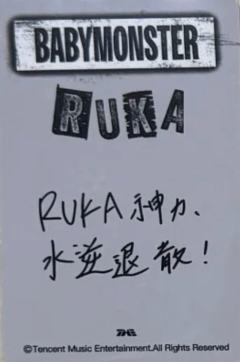 BABYMONSTER
RUKA
RUKA 神力、
水逆退散！
©Tencent Music Entertainment.All Rights Reserved